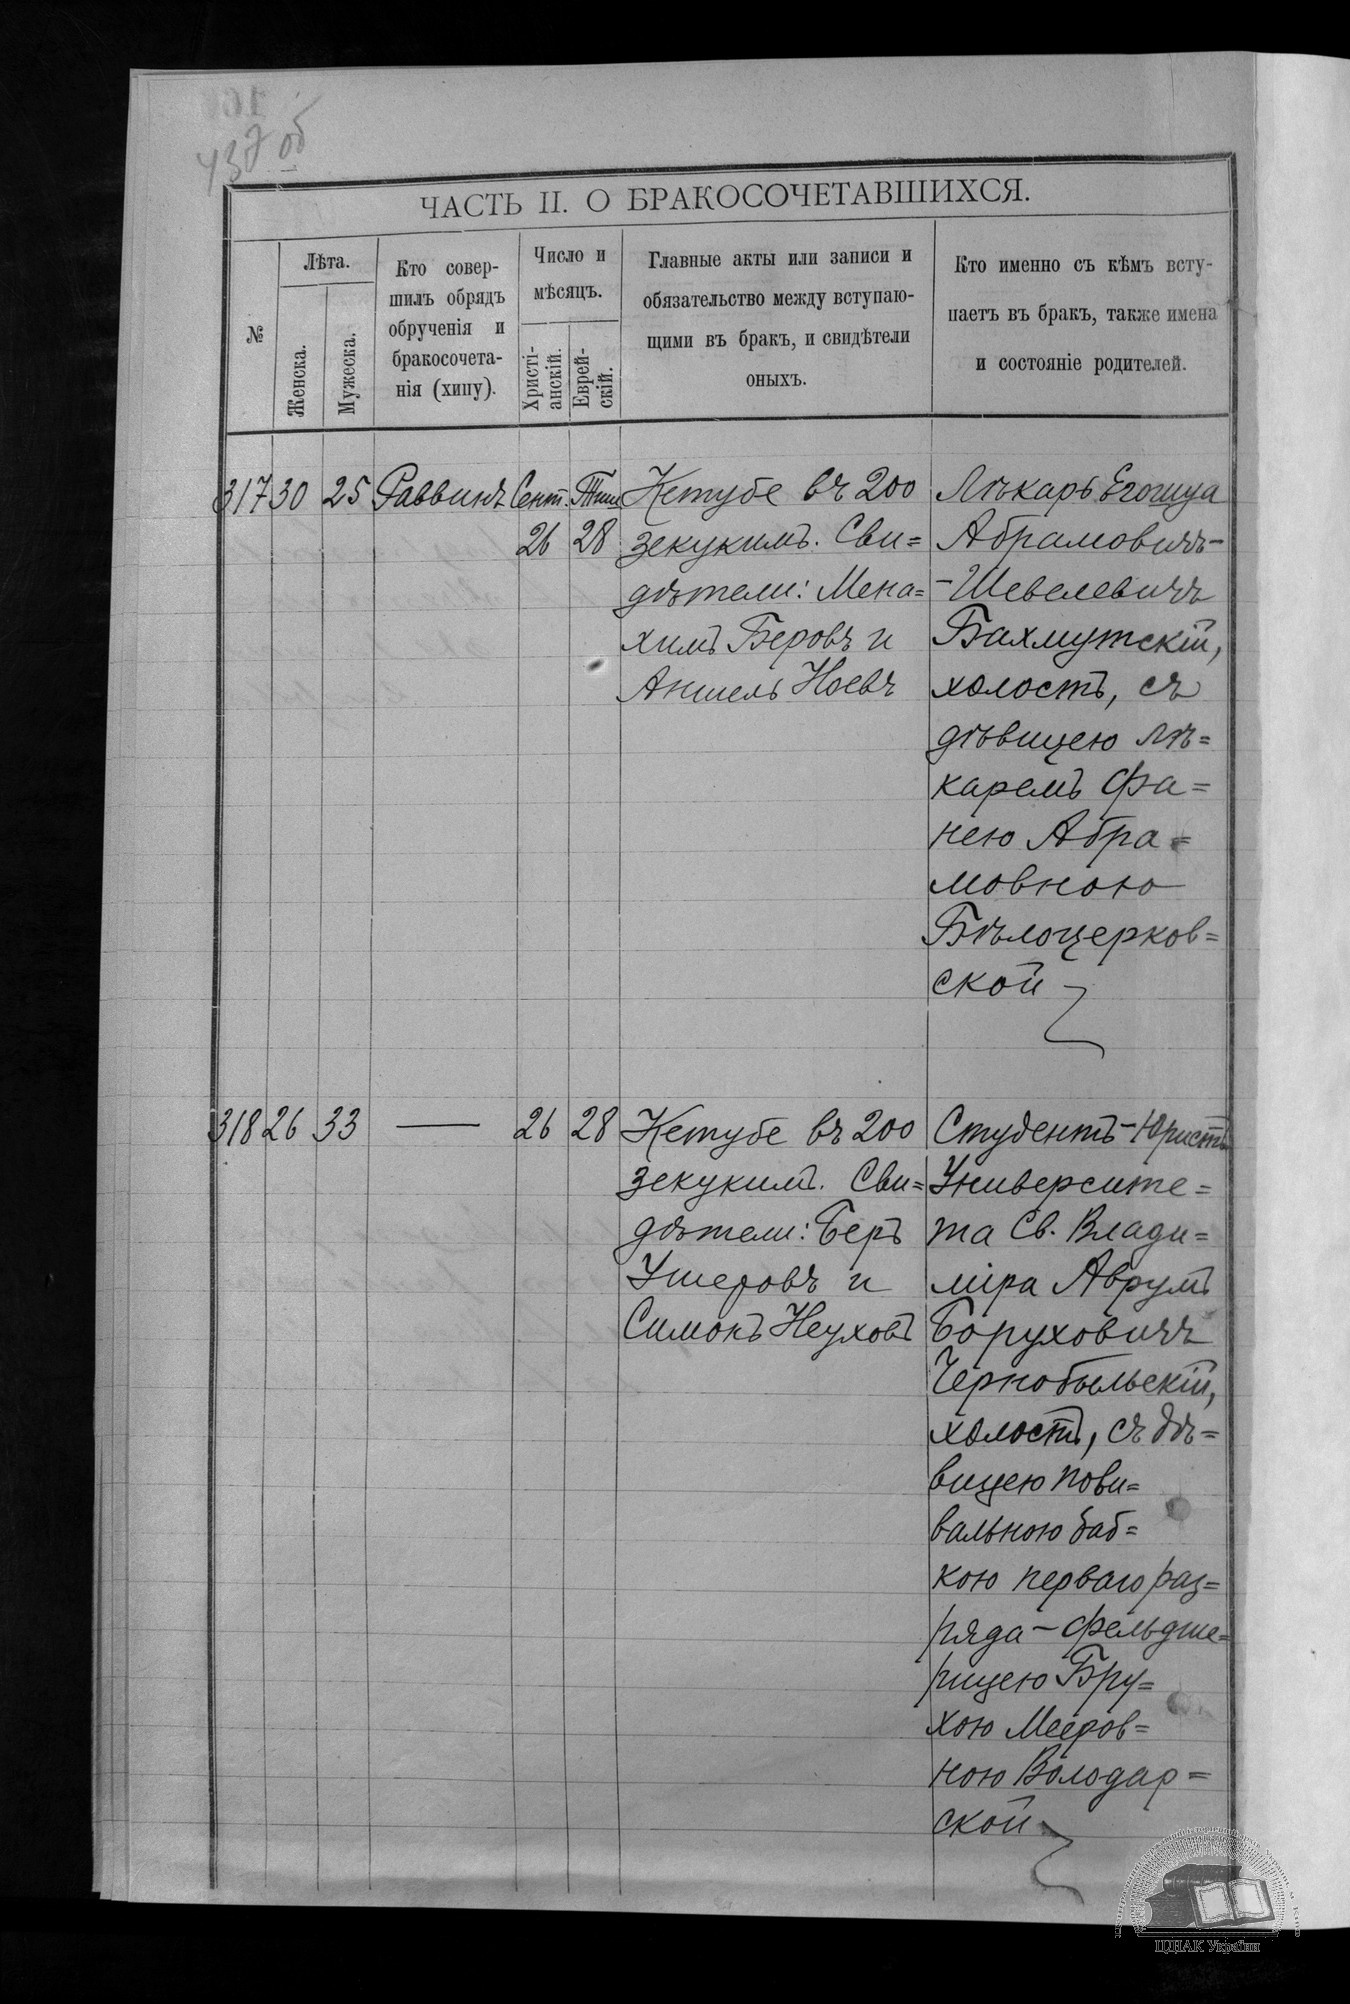 437 об
ЧАСТЬ II. О БРАКОСОЧЕТАВШИХСЯ.
№
Лѣта.
Женска.
Мужеска.
Кто совер-
шилъ обрядъ
обрученія и
бракосочета-
нія (хипу).
Число и
мѣсяцъ.
Христі-
анскій.
Еврей-
скій.
Главные акты или записи и
обязательство между вступаю-
щими въ бракъ, и свидѣтели
оныхъ.
Кто именно съ кѣмъ всту-
паетъ въ бракъ, также имена
и состояніе родителей.
317 30 25 Раввинъ Сент. Тиш.
26 28
Кетубе въ 200
зекукимъ. Сви=
дѣтели: Мена=
химъ Беровъ и
Аншель Ноевъ
Лѣкарь Егошуа
Абрамовичъ-
-Шевелевичъ
Бахмутскій,
холостъ, съ
дѣвицею лѣ=
каремъ Фа=
нею Абра=
мовною
Бѣлоцерков=
ской
318 26 33 — 26 28
Кетубе въ 200
зекукимъ. Сви=
дѣтели: Беръ
Ушеровъ и
Симонъ Неуховъ
Студентъ-Юристъ
Университе=
та Св. Влади=
міра Аврумъ
Боруховичъ
Чернобыльскій,
холостъ, съ дѣ=
вицею пови=
вальною баб=
кою перваго раз=
ряда-фельдше=
рицею Бру=
хою Мееров=
ною Володар=
ской
ЦДІАК України